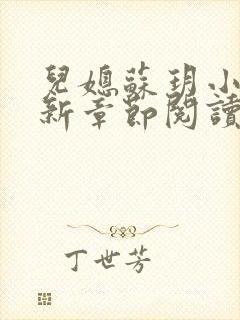 兒媳蘇玥小
新章節閱讀
丁世芳